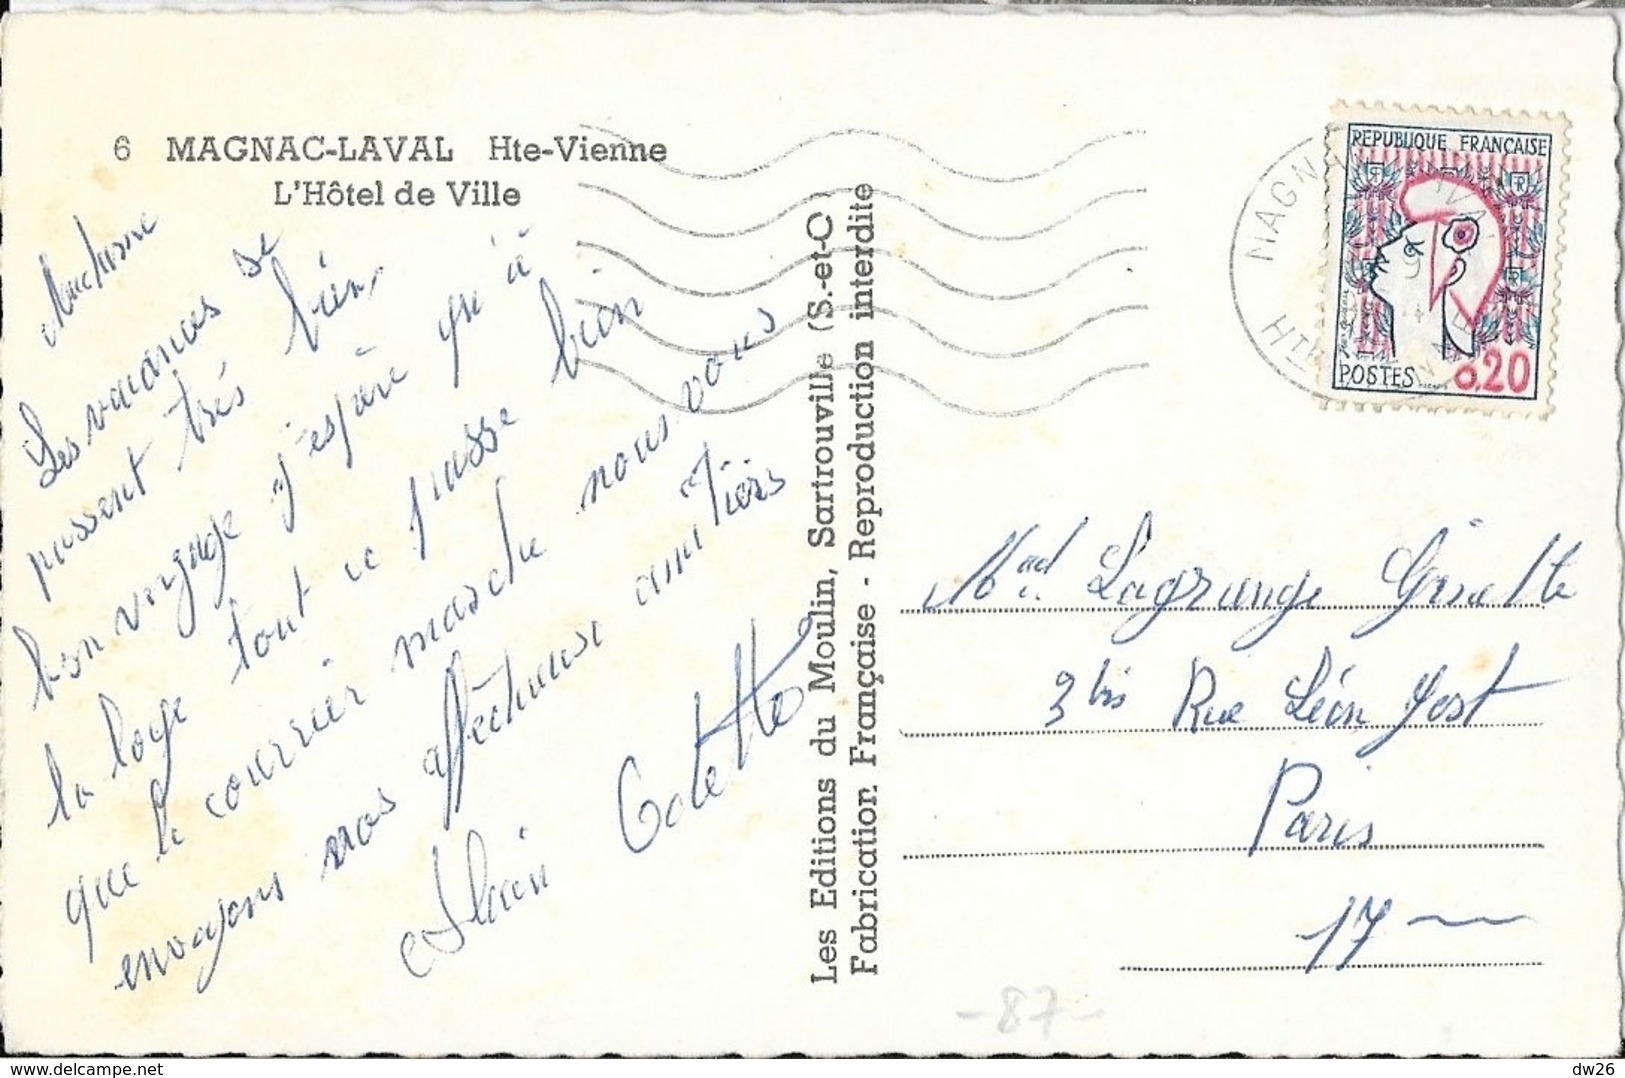 6 MAGNAC-LAVAL Hte-Vienne
L'Hôtel de Ville
Madame
Les vacances se
passent très bien,
bon voyage j'espère qu'à
la loge tout ce passe bien
que le courrier marche nous vous
envoyons nos affectueuse amitiers
Alain Colette
Les Editions du Moulin, Sartrouville (S.-et-O)
Fabrication Française - Reproduction interdite
REPUBLIQUE FRANÇAISE
POSTES 0.20
MAGNAC LAVAL
Hte VIENNE
Mad Lagrange Giselle
3 bis Rue Léon Jost
Paris
17
-87-
dw26